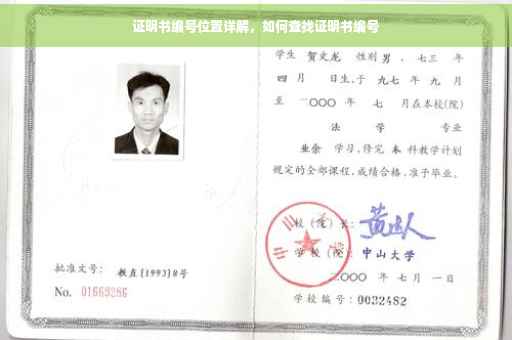 证明书编号位置详解，如何查找证明书编号
学生 贺文龙 性别男，七三 年
四 月 日生，于 九七 年 九 月
至 二〇〇〇 年 七 月在本校(院)
法 学 专业
业余 学习，修完 本 科教学计划
规定的全部课程，成绩合格，准予毕业。
校(院)长：
学校(院)：中山大学
二〇〇〇 年 七 月 一 日
学校编号：0032482
批准文号：教直[1993]8号
No. 01669286